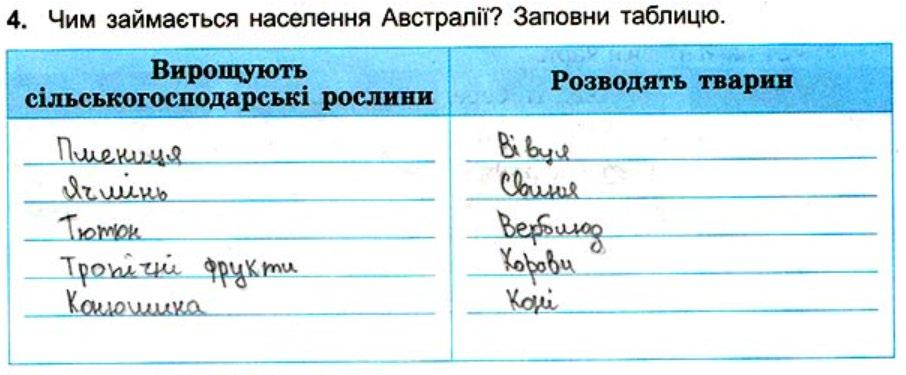 4. Чим займається населення Австралії? Заповни таблицю.
Вирощують
сільськогосподарські рослини
Розводять тварин
Пшениця
Ячмінь
Тютюн
Тропічні фрукти
Конюшина
Вівця
Свиня
Верблюд
Корови
Коні